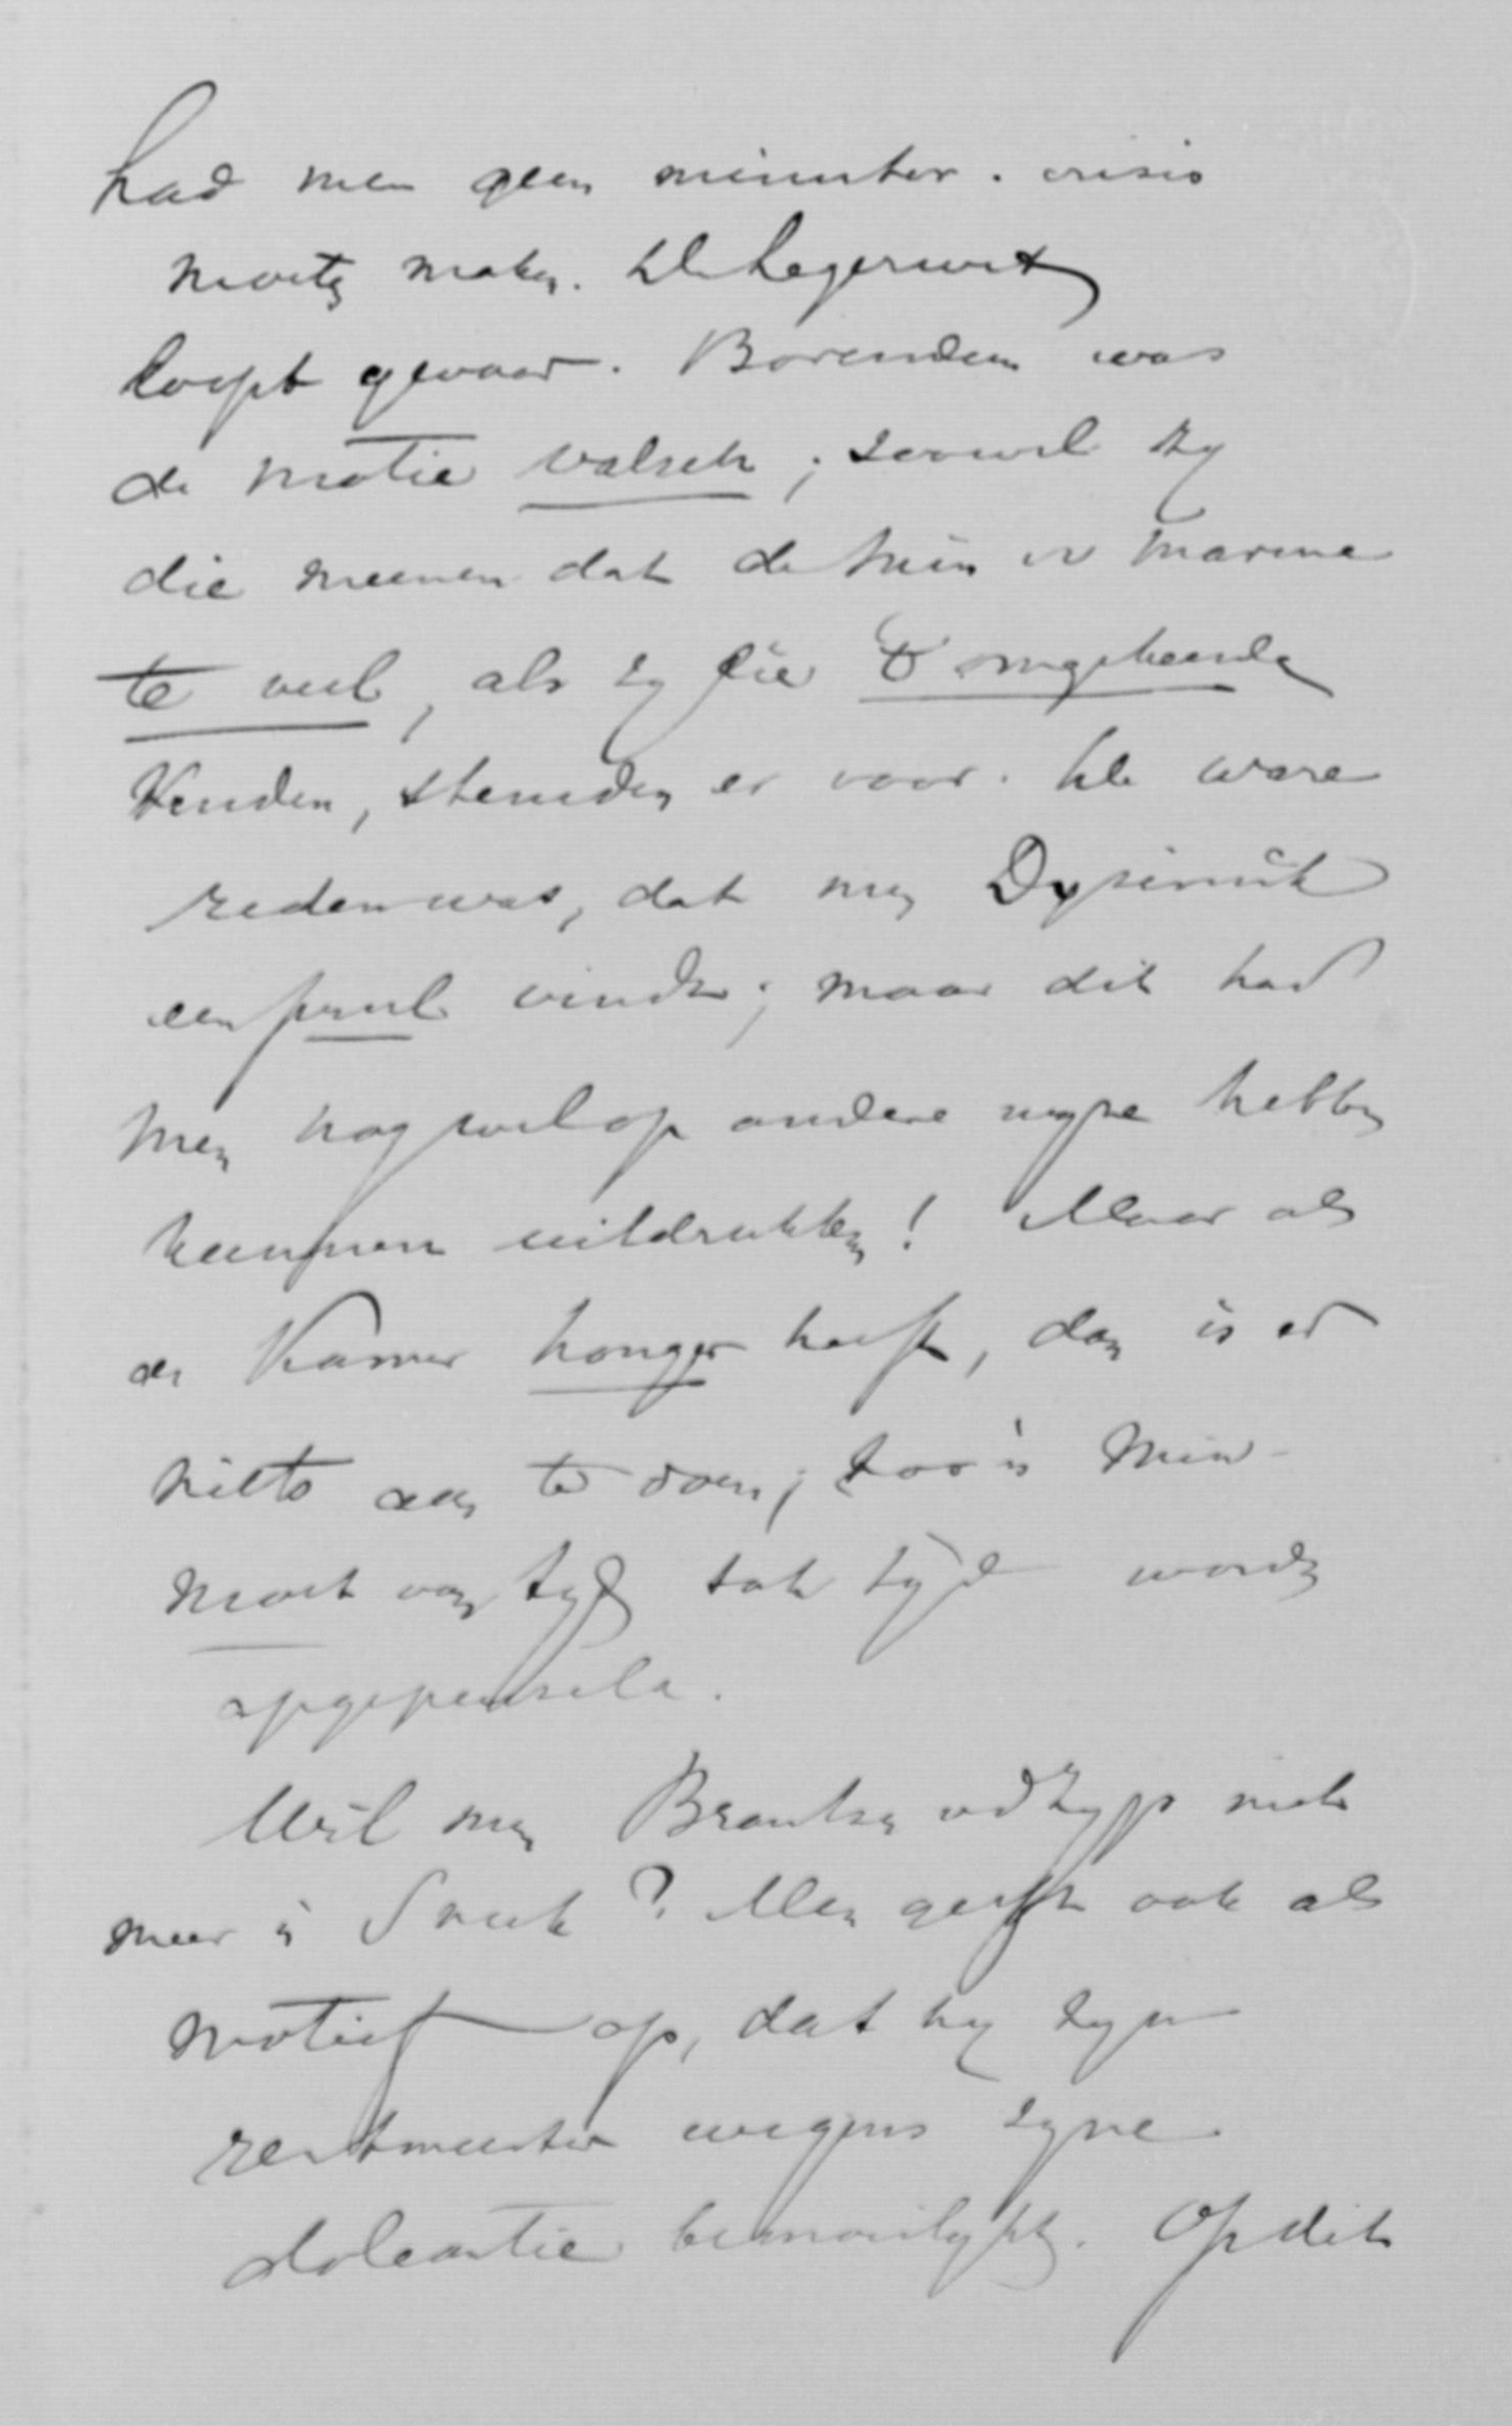 had men geen minister-crisis
moeten maken. De Legerwet
loopt gevaar. Bovendien was
de motie valsch; zoowel zy
die meenen dat de Min v Marine
te veel, als zy die te omgekeerde
vinden, stemden er voor. De ware
reden was, dat men Dyserinck
een prul vindt; maar dit had
men nog wel op andere wyze hebben
kunnen uitdrukken! Maar als
de Kamer honger heeft, dan is er
niets aan te doen; zoo'n Min-
moet van tyd tot tyd worden
opgepeuzeld.
Wil men Brantsen vd Zyp niet
meer in Sneek? Men geeft ook als
motief op, dat hy zyn
rentmeester wegens zyne
doleantie bemoeilykt. Op dit